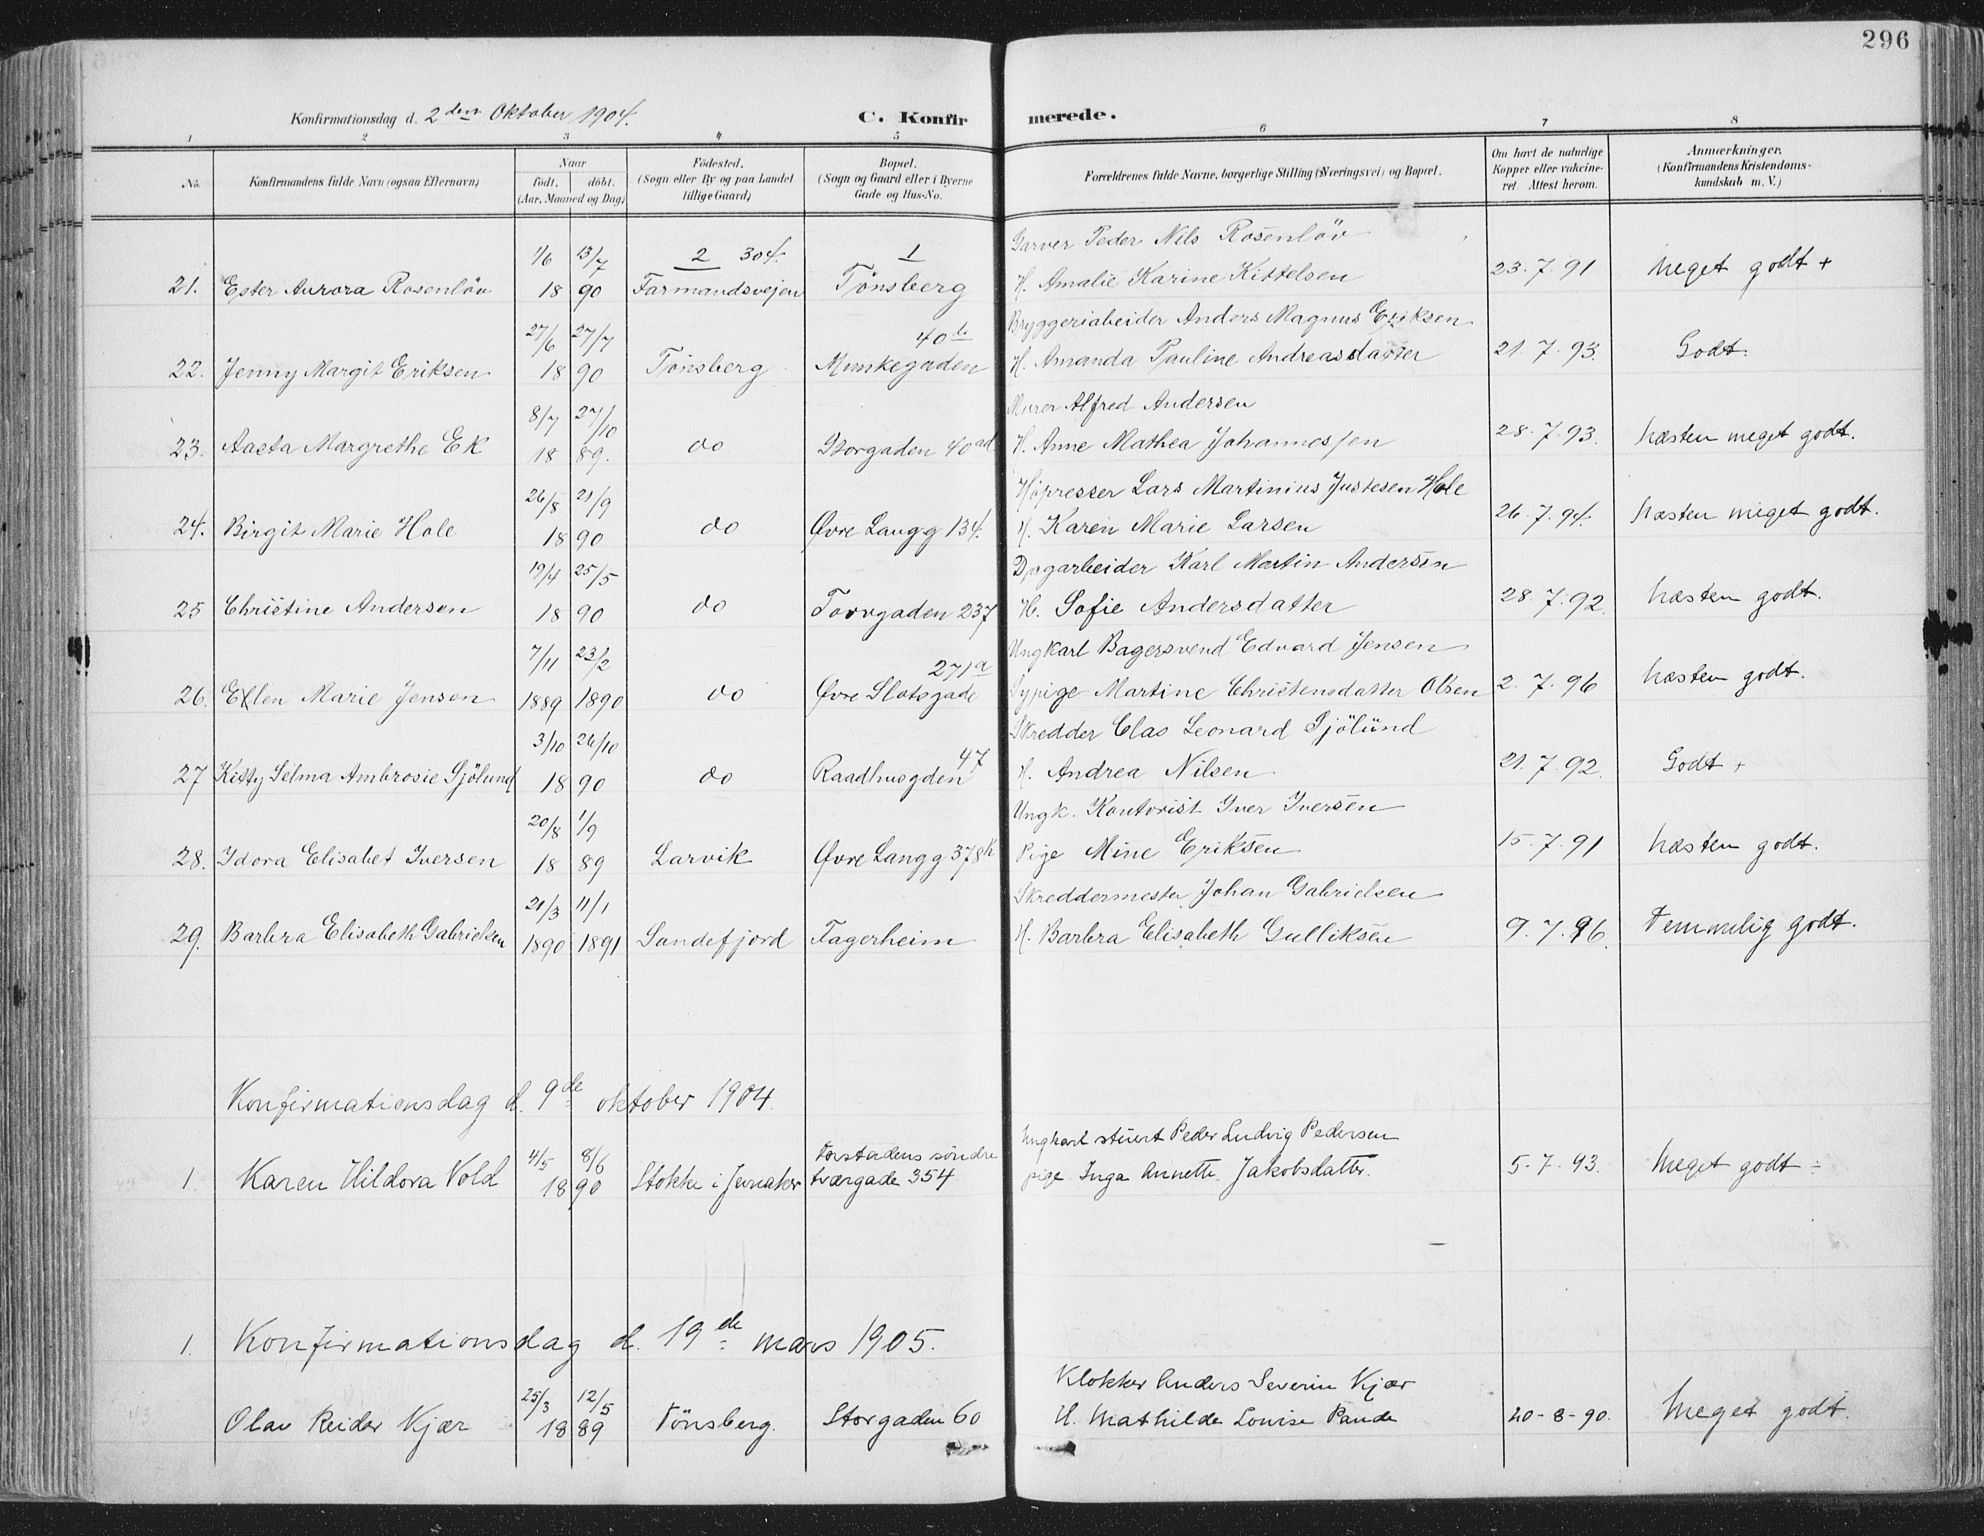 296
Konfirmationsdag d. 2den Oktober 1904.
C. Konfirmerede.
1 2 3 4 5 6 7 8
No. Konfirmandens fulde Navn (ogsaa Efternavn)
Naar født. døbt. (Aar, Maaned og Dag)
Fødested. (Sogn eller By og paa Landet tillige Gaard)
Bopæl. (Sogn og Gaard eller i Byerne Gade og Hus-No.
Forældrenes fulde Navne, borgerlige Stilling (Næringsvei) og Bopæl.
Om havt de naturlige Kopper eller vakcineret. Attest herom.
Anmærkninger. (Konfirmandens Kristendomskundskab m. V.)
1/6 13/7 2 304. 1 Garver Peder Nils Rosenløv
21. Ester Aurora Rosenløv 18 90 Farmandsvejen Tønsberg H. Amalie Karine Kittelsen 23.7.91 Meget godt +
27/6 27/7 40b Bryggeriabeider Anders Magnus Eriksen
22. Jenny Margit Eriksen 18 90 Tønsberg Munkegaden H. Amanda Pauline Andreasdatter 21.7.93. Godt.
8/7 27/10 Murer Alfred Andersen
23. Aasta Margrethe Ek 18 89. do Storgaden 40ad H. Anne Mathea Johannesjen 28.7.93. Næsten meget godt.
26/8 21/9 Høpresser Lars Martinius Justesen Hole
24. Birgit Marie Hole 18 90 do Øvre Langg 134. H. Karen Marie Larsen 26.7.94. Næsten meget godt.
19/4 25/5 Dagarbeider Karl Martin Andersen
25 Christine Andersen 18 90 do Torvgaden 237 H. Sofie Andersdatter 28.7.92. Næsten godt.
7/11 23/2 271a Ungkarl Bagersvend Edvard Jensen
26. Ellen Marie Jensen 1889 1890 do Øvre Slotsgade Sypige Martine Christensdatter Olsen 2.7.96 Næsten godt.
3/10 26/10 47 Skredder Clas Leonard Sjölund
27 Kitty Selma Ambrosie Sjölund 18 90 do Raadhusgden H. Andrea Nilsen 21.7.92. Godt +
20/8 1/9 Ungk. Kontorist Iver Iversen
28. Idora Elisabet Iversen 18 89 Larvik Øvre Langg 378k Pige Mine Eriksen 15.7.91 Næsten godt.
21/3 11/1 Skreddermester Johan Gabrielsen
29. Barbra Elisabeth Gabrielsen 1890 1891 Sandefjord Fagerheim H. Barbra Elisabeth Gulliksen 9.7.96. Temmelig godt.
Konfirmationsdag d. 9de oktober 1904.
4/5 8/6 Forstadens søndre Ungkarl stuert Peder Ludvig Pedersen
1. Karen Hildora Vold 18 90 Stokke i Jevnaker tværgade 354 pige Inga Annette Jakobsdatter. 5.7.93. Meget godt ÷
1. Konfirmationsdag d. 19de mars 1905.
25/3 12/5 Klokker Anders Severin Kjær
Olav Reidar Kjær 18 89 Tönsberg. Storgaden 60 H. Mathilde Louise Pande 20-8-90. Meget godt.